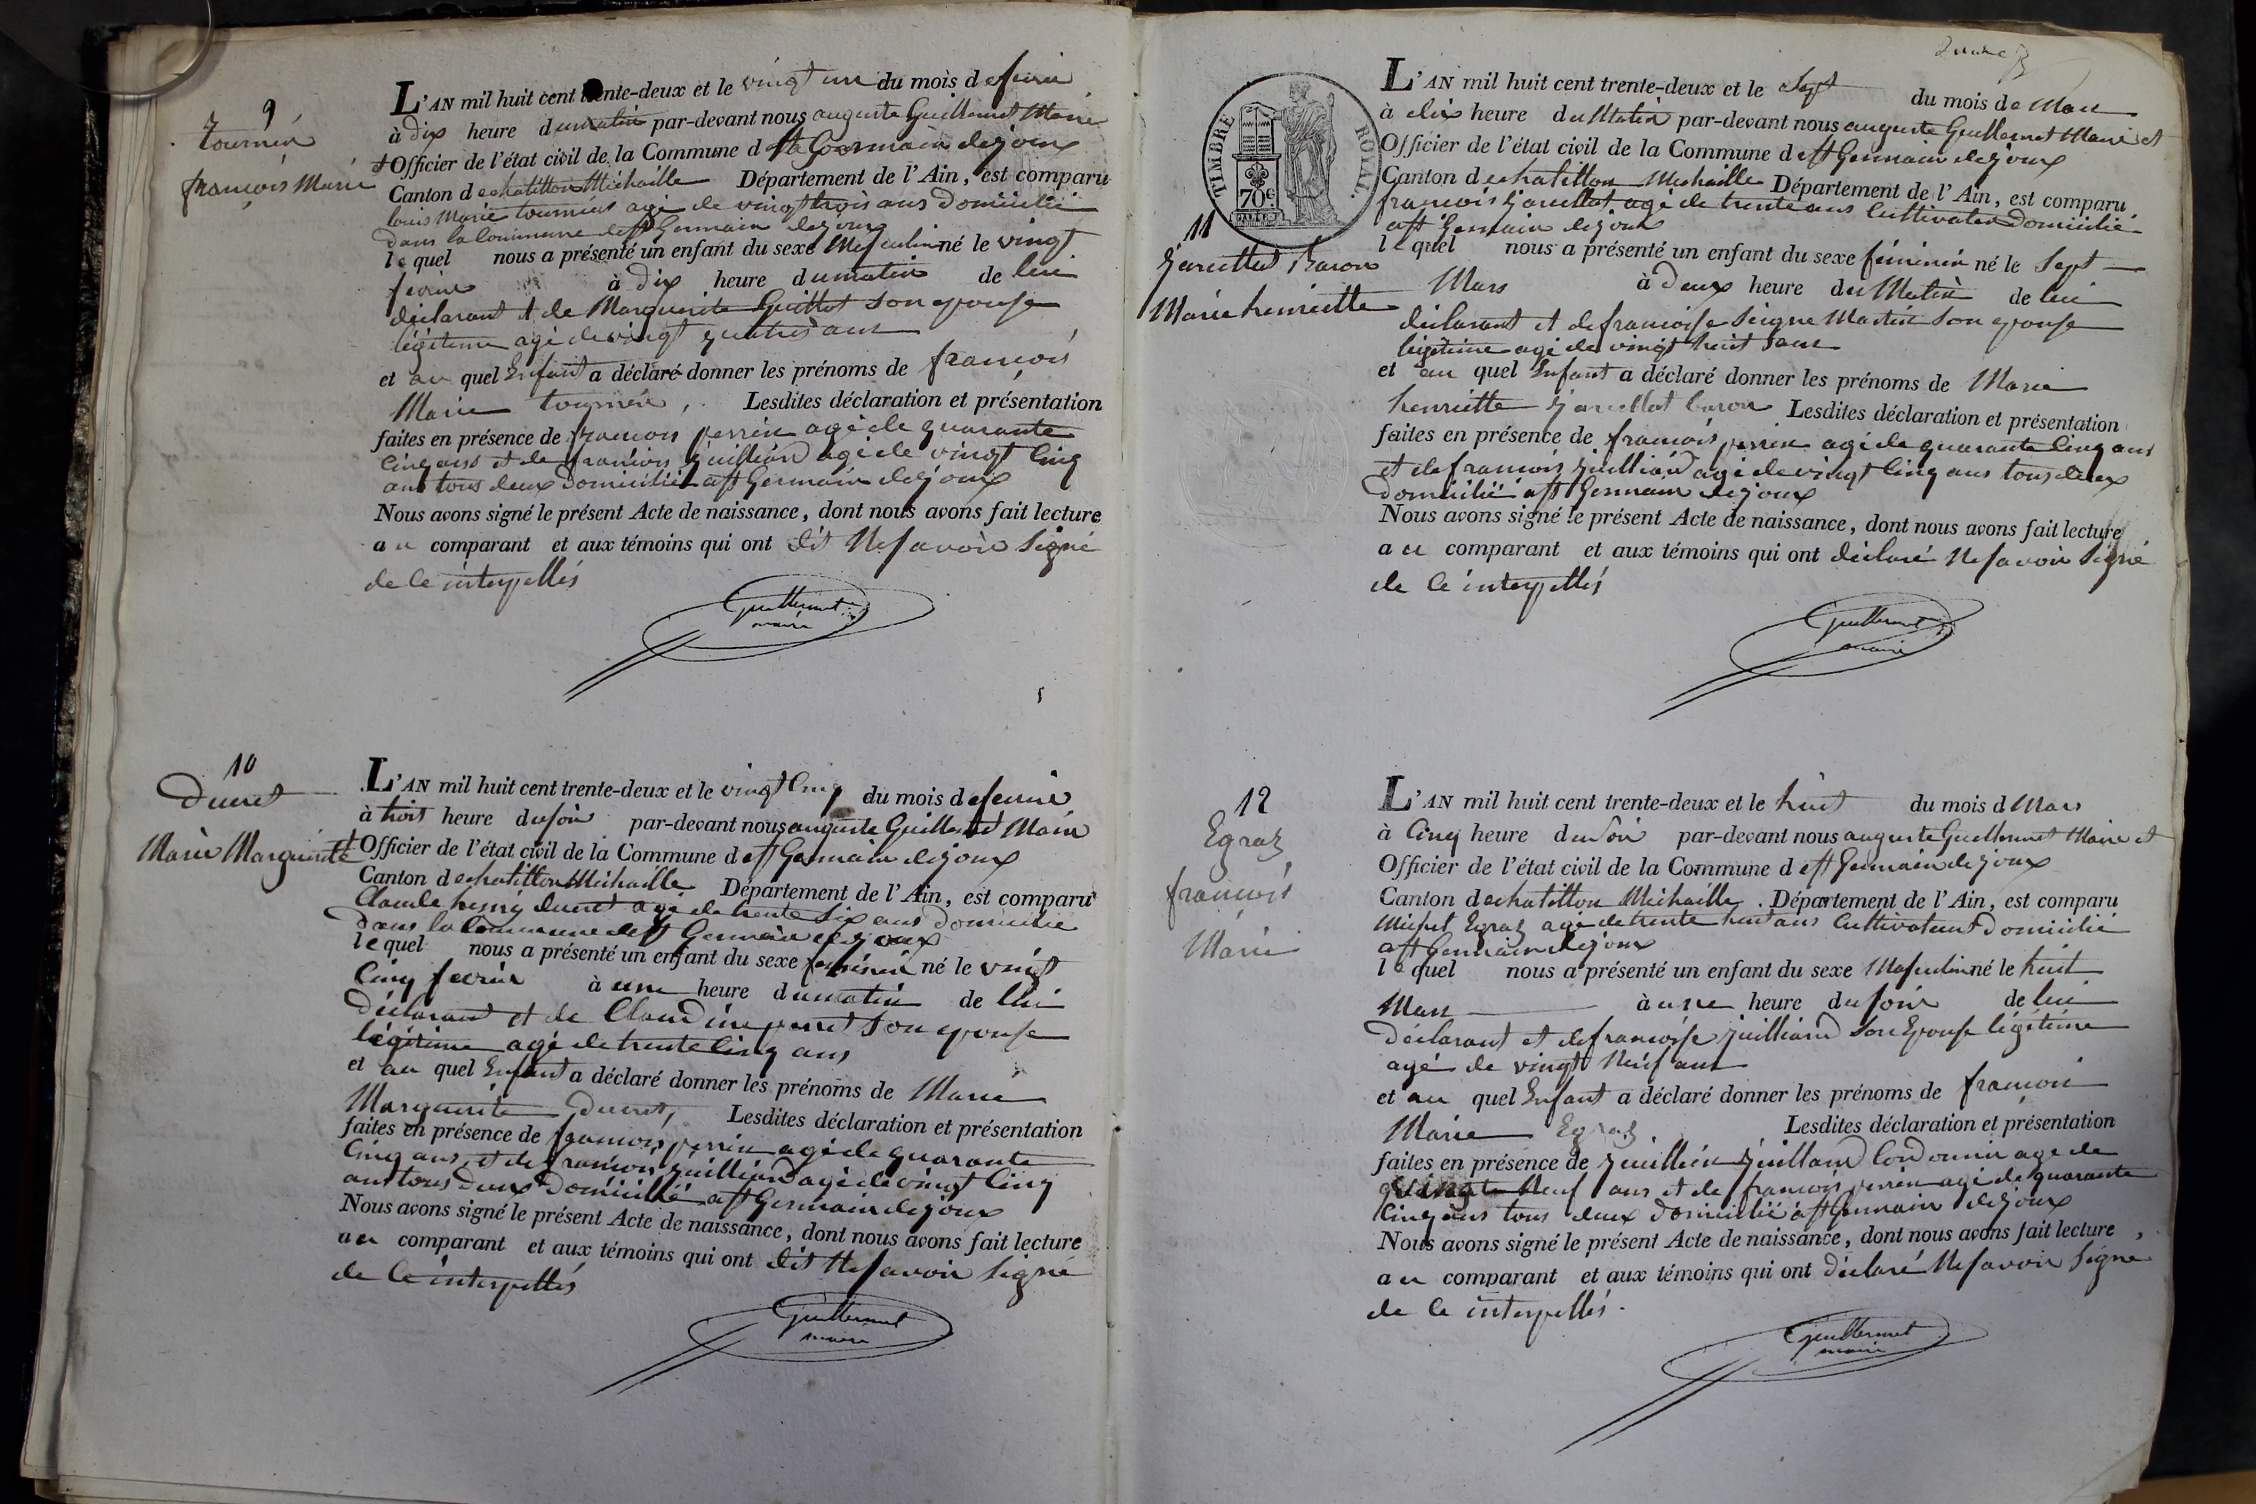 9
tournier
françois Marie
L'AN mil huit cent trente-deux et le vingt un du mois de fevrier
à dix heure du matin par-devant nous auguste Guillermet Maire
et Officier de l'état civil de la Commune de St Germain de joux
Canton de chatillon Michaille Département de l'Ain, est comparu
louis Marie tournier agé de vingt trois ans domicilié
dans la Commune de St Germain de joux
lequel nous a présenté un enfant du sexe Masculin né le vingt
fevrier à dix heure du matin de lui
déclarant et de Marguerite Guillot son epouse
légitime agé de vingt quatres ans
et au quel Enfant a déclaré donner les prénoms de françois
Marie tournier, Lesdites déclaration et présentation
faites en présence de françois perrin agé de quarante
Cinq ans et de françois juilliard agé de vingt Cinq
ans tous deux domicilié a St Germain de joux
Nous avons signé le présent Acte de naissance, dont nous avons fait lecture
au comparant et aux témoins qui ont dit Ne savoir Signé
de ce interpellés
Guillermet
maire
10
Ducret
Marie Marguerite
L'AN mil huit cent trente-deux et le vingt Cinq du mois de fevrier
à trois heure du soir par-devant nous auguste Guillermet Maire
Officier de l'état civil de la Commune de St Germain de joux
Canton de chatillon Michaille Département de l'Ain, est comparu
Claude henry ducret agé de trente Six ans domicilié
dans la Commune de St Germain de joux
lequel nous a présenté un enfant du sexe feminin né le vingt
Cinq fevrier à une heure du matin de lui
déclarant et de Claudine perret son epouse
légitime agé de trente Cinq ans
et au quel Enfant a déclaré donner les prénoms de Marie
Marguerite Ducret, Lesdites déclaration et présentation
faites en présence de françois perrin agé de quarante
Cinq ans et de françois juilliard agé de vingt Cinq
ans tous deux domicilié a St Germain de joux
Nous avons signé le présent Acte de naissance, dont nous avons fait lecture
au comparant et aux témoins qui ont dit Ne savoir Signé
de ce interpellés
Guillermet
maire
TIMBRE ROYAL.
70c
11
Baron
Marie henriette
L'AN mil huit cent trente-deux et le Sept du mois de Mars
à dix heure du Matin par-devant nous auguste Guillermet Maire et
Officier de l'état civil de la Commune de St Germain de joux
Canton de chatillon Michaille Département de l'Ain, est comparu
françois agé de trente ans Cultivateur Domicilié
a St Germain de joux
lequel nous a présenté un enfant du sexe féminin né le Sept
Mars à deux heure du Matin de lui
déclarant et de françoise Seigne Martin son epouse
légitime agé de vingt huit ans
et au quel Enfant a déclaré donner les prénoms de Marie
henriette baron Lesdites déclaration et présentation
faites en présence de françois perrin agé de quarante Cinq ans
et de françois juilliard agé de vingt Cinq ans tous deux
domicilié a St Germain de joux
Nous avons signé le présent Acte de naissance, dont nous avons fait lecture
au comparant et aux témoins qui ont déclaré Ne savoir Signé
de ce interpellés
Guillermet
maire
12
Egraz
françois
Marie
L'AN mil huit cent trente-deux et le huit du mois d Mars
à Cinq heure du Soir par-devant nous auguste Guillermet Maire et
Officier de l'état civil de la Commune de St Germain de joux
Canton de chatillon Michaille. Département de l'Ain, est comparu
Michel Egraz agé de trente huit ans Cultivateur Domicilié
a St Germain de joux
lequel nous a présenté un enfant du sexe Masculin né le huit
Mars à une heure du soir de lui
déclarant et de françoise juilliard Son Epouse légitime
agé de vingt Neuf ans
et au quel Enfant a déclaré donner les prénoms de françois
Marie Egraz Lesdites déclaration et présentation
faites en présence de Cordonnier age de
Neuf ans et de françois perrin agé de quarante
Cinq ans tous deux domicilié a St Germain de joux
Nous avons signé le présent Acte de naissance, dont nous avons fait lecture
au comparant et aux témoins qui ont déclaré Ne savoir Signé
de ce interpellés.
Guillermet
maire